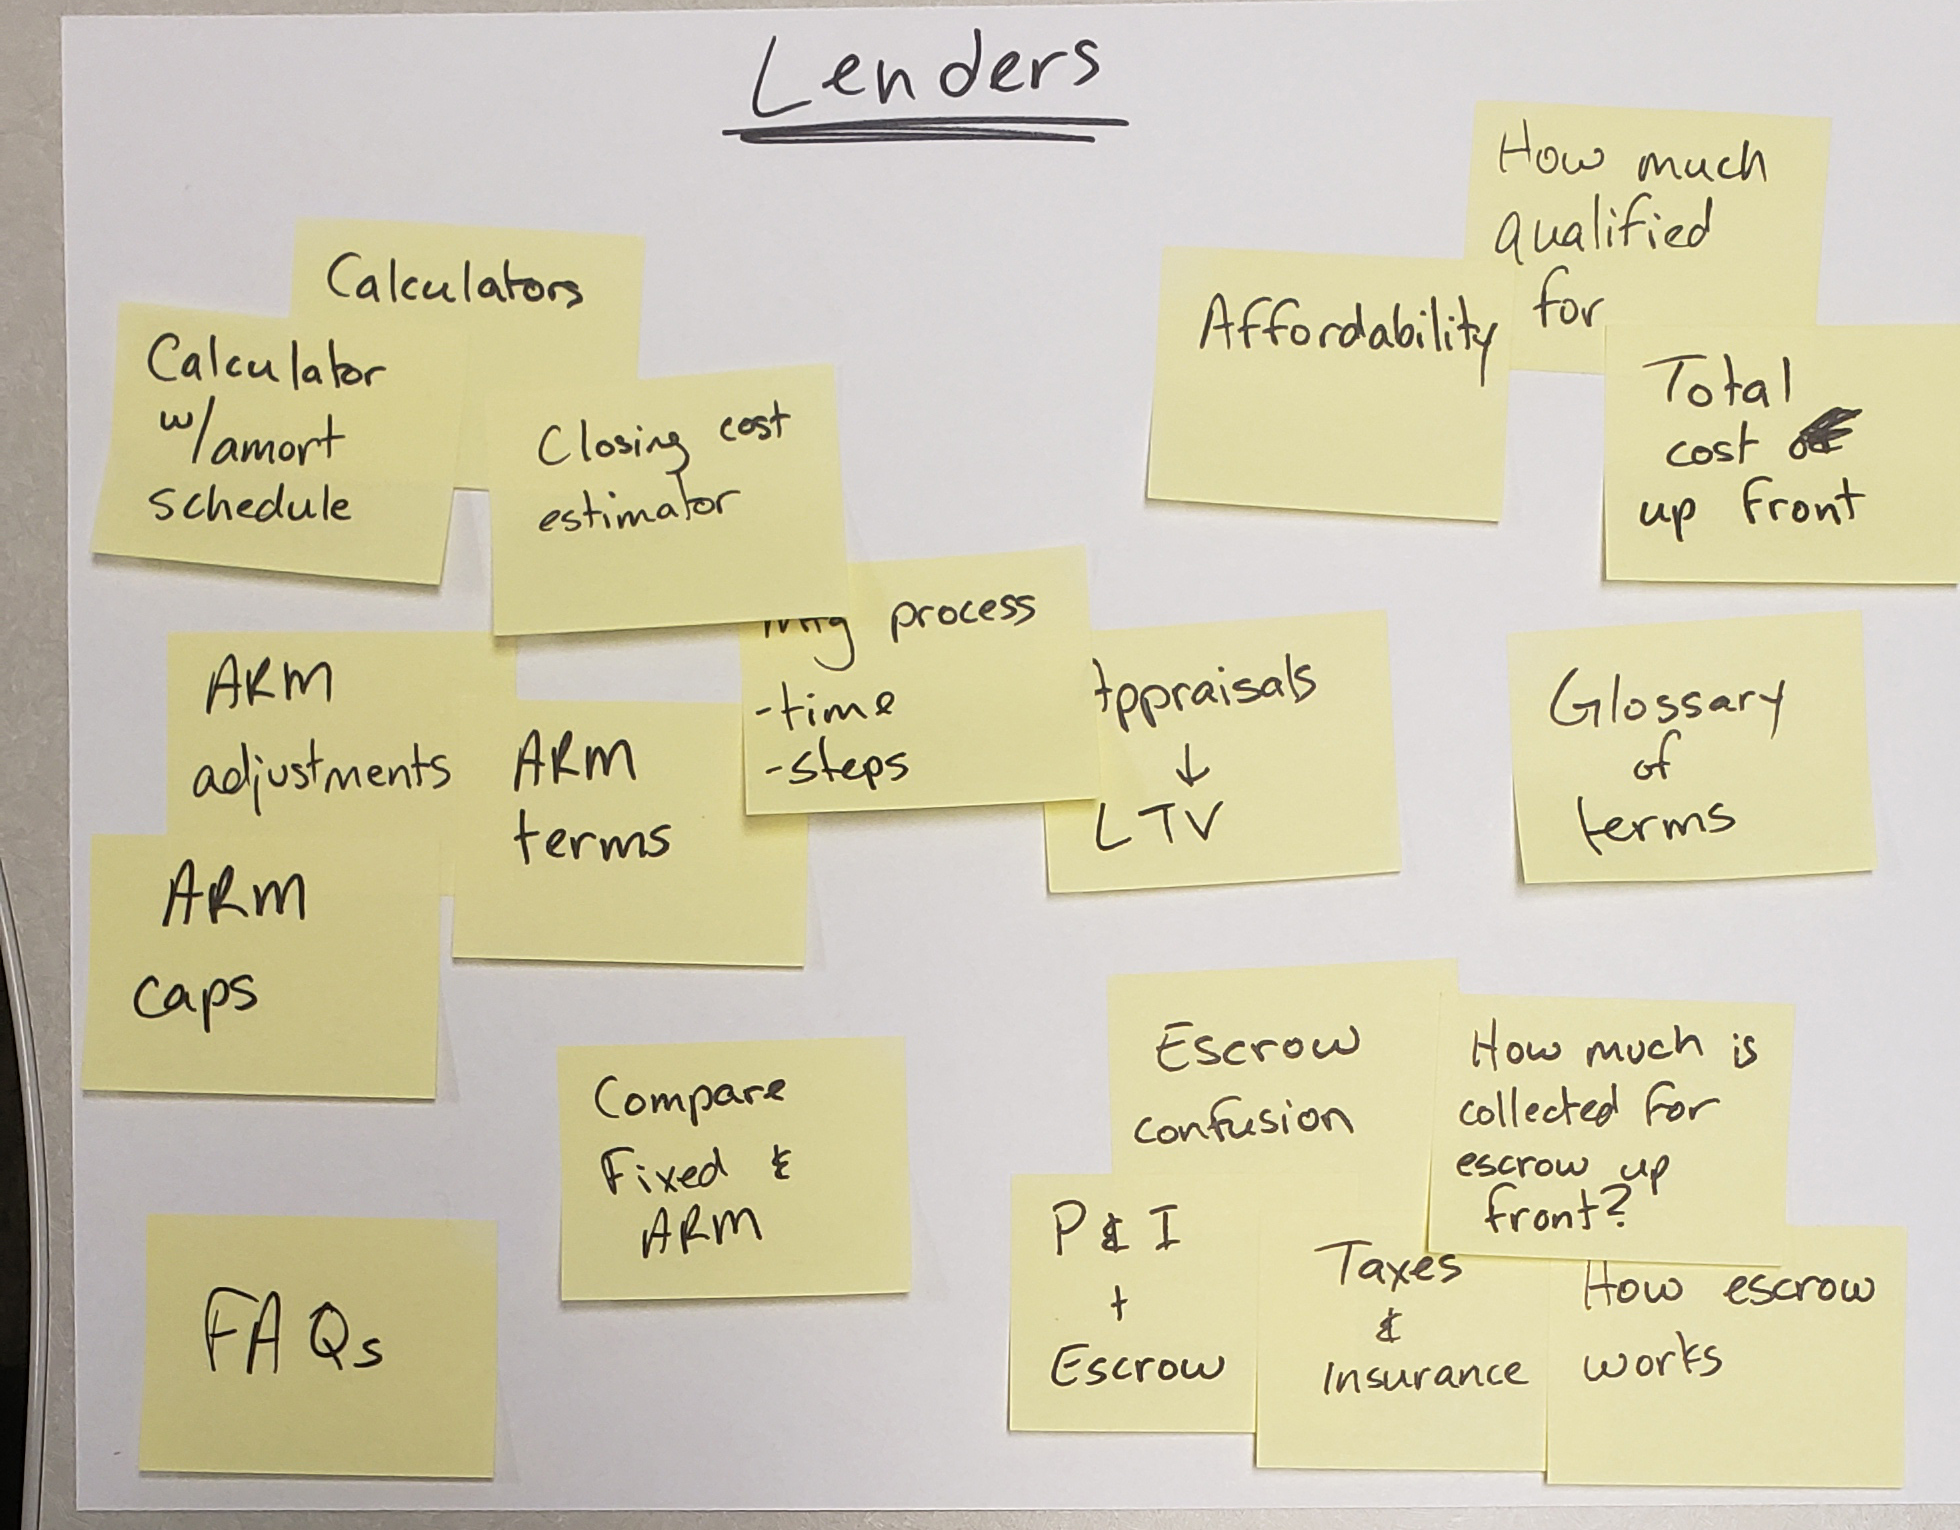 Lenders
Calculators
Calculator
w/amort
schedule
Closing cost
estimator
How much
qualified
for
Affordability
Total
cost
up front
ARM
adjustments
ARM
terms
ARM
caps
process
-time
-steps
Appraisals
↓
LTV
Glossary
of
terms
Compare
Fixed &
ARM
FAQs
Escrow
confusion
How much is
collected for
escrow up
front?
P & I
+
Escrow
Taxes
&
insurance
How escrow
works